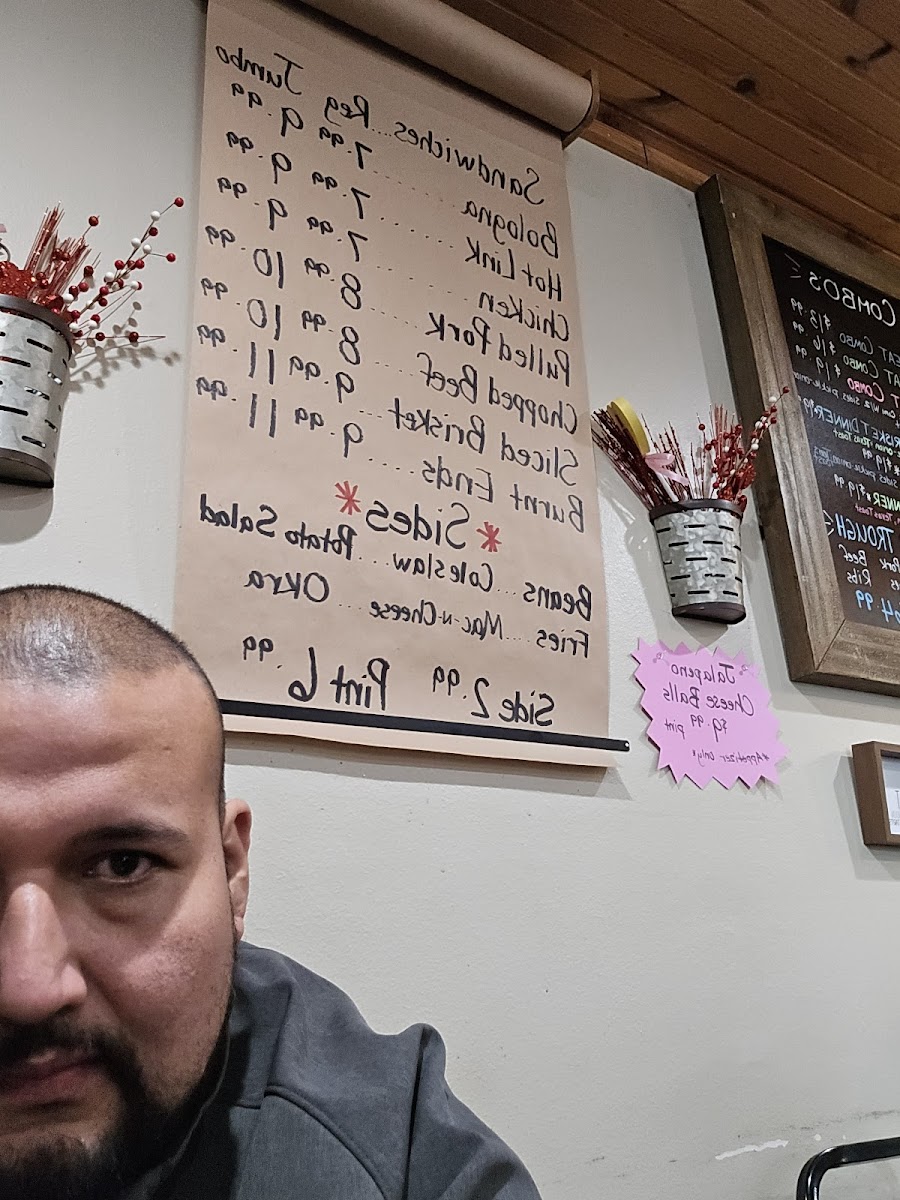 Sandwiches....Reg Jumbo
Bologna ........ 7.99 9.99
Hot Link ........ 7.99 9.99
Chicken ........ 7.99 9.99
Pulled Pork ..... 8.99 10.99
Chopped Beef .... 8.99 10.99
Sliced Brisket ... 9.99 11.99
Burnt Ends ...... 9.99 11.99
*Sides*
Beans ... Coleslaw .... Potato Salad
Fries .... Mac-n-Cheese .... Okra
Side 2.99 Pint 6.99
Jalapeno
Cheese Balls
$9.99 pint
*Appetizer only*
COMBOS
COMBO $13.99
COMBO $16.99
COMBO $19.99
DINNER
$19.99
$19.99
Texas Toast
TROUGH
Pork Beef
Ribs